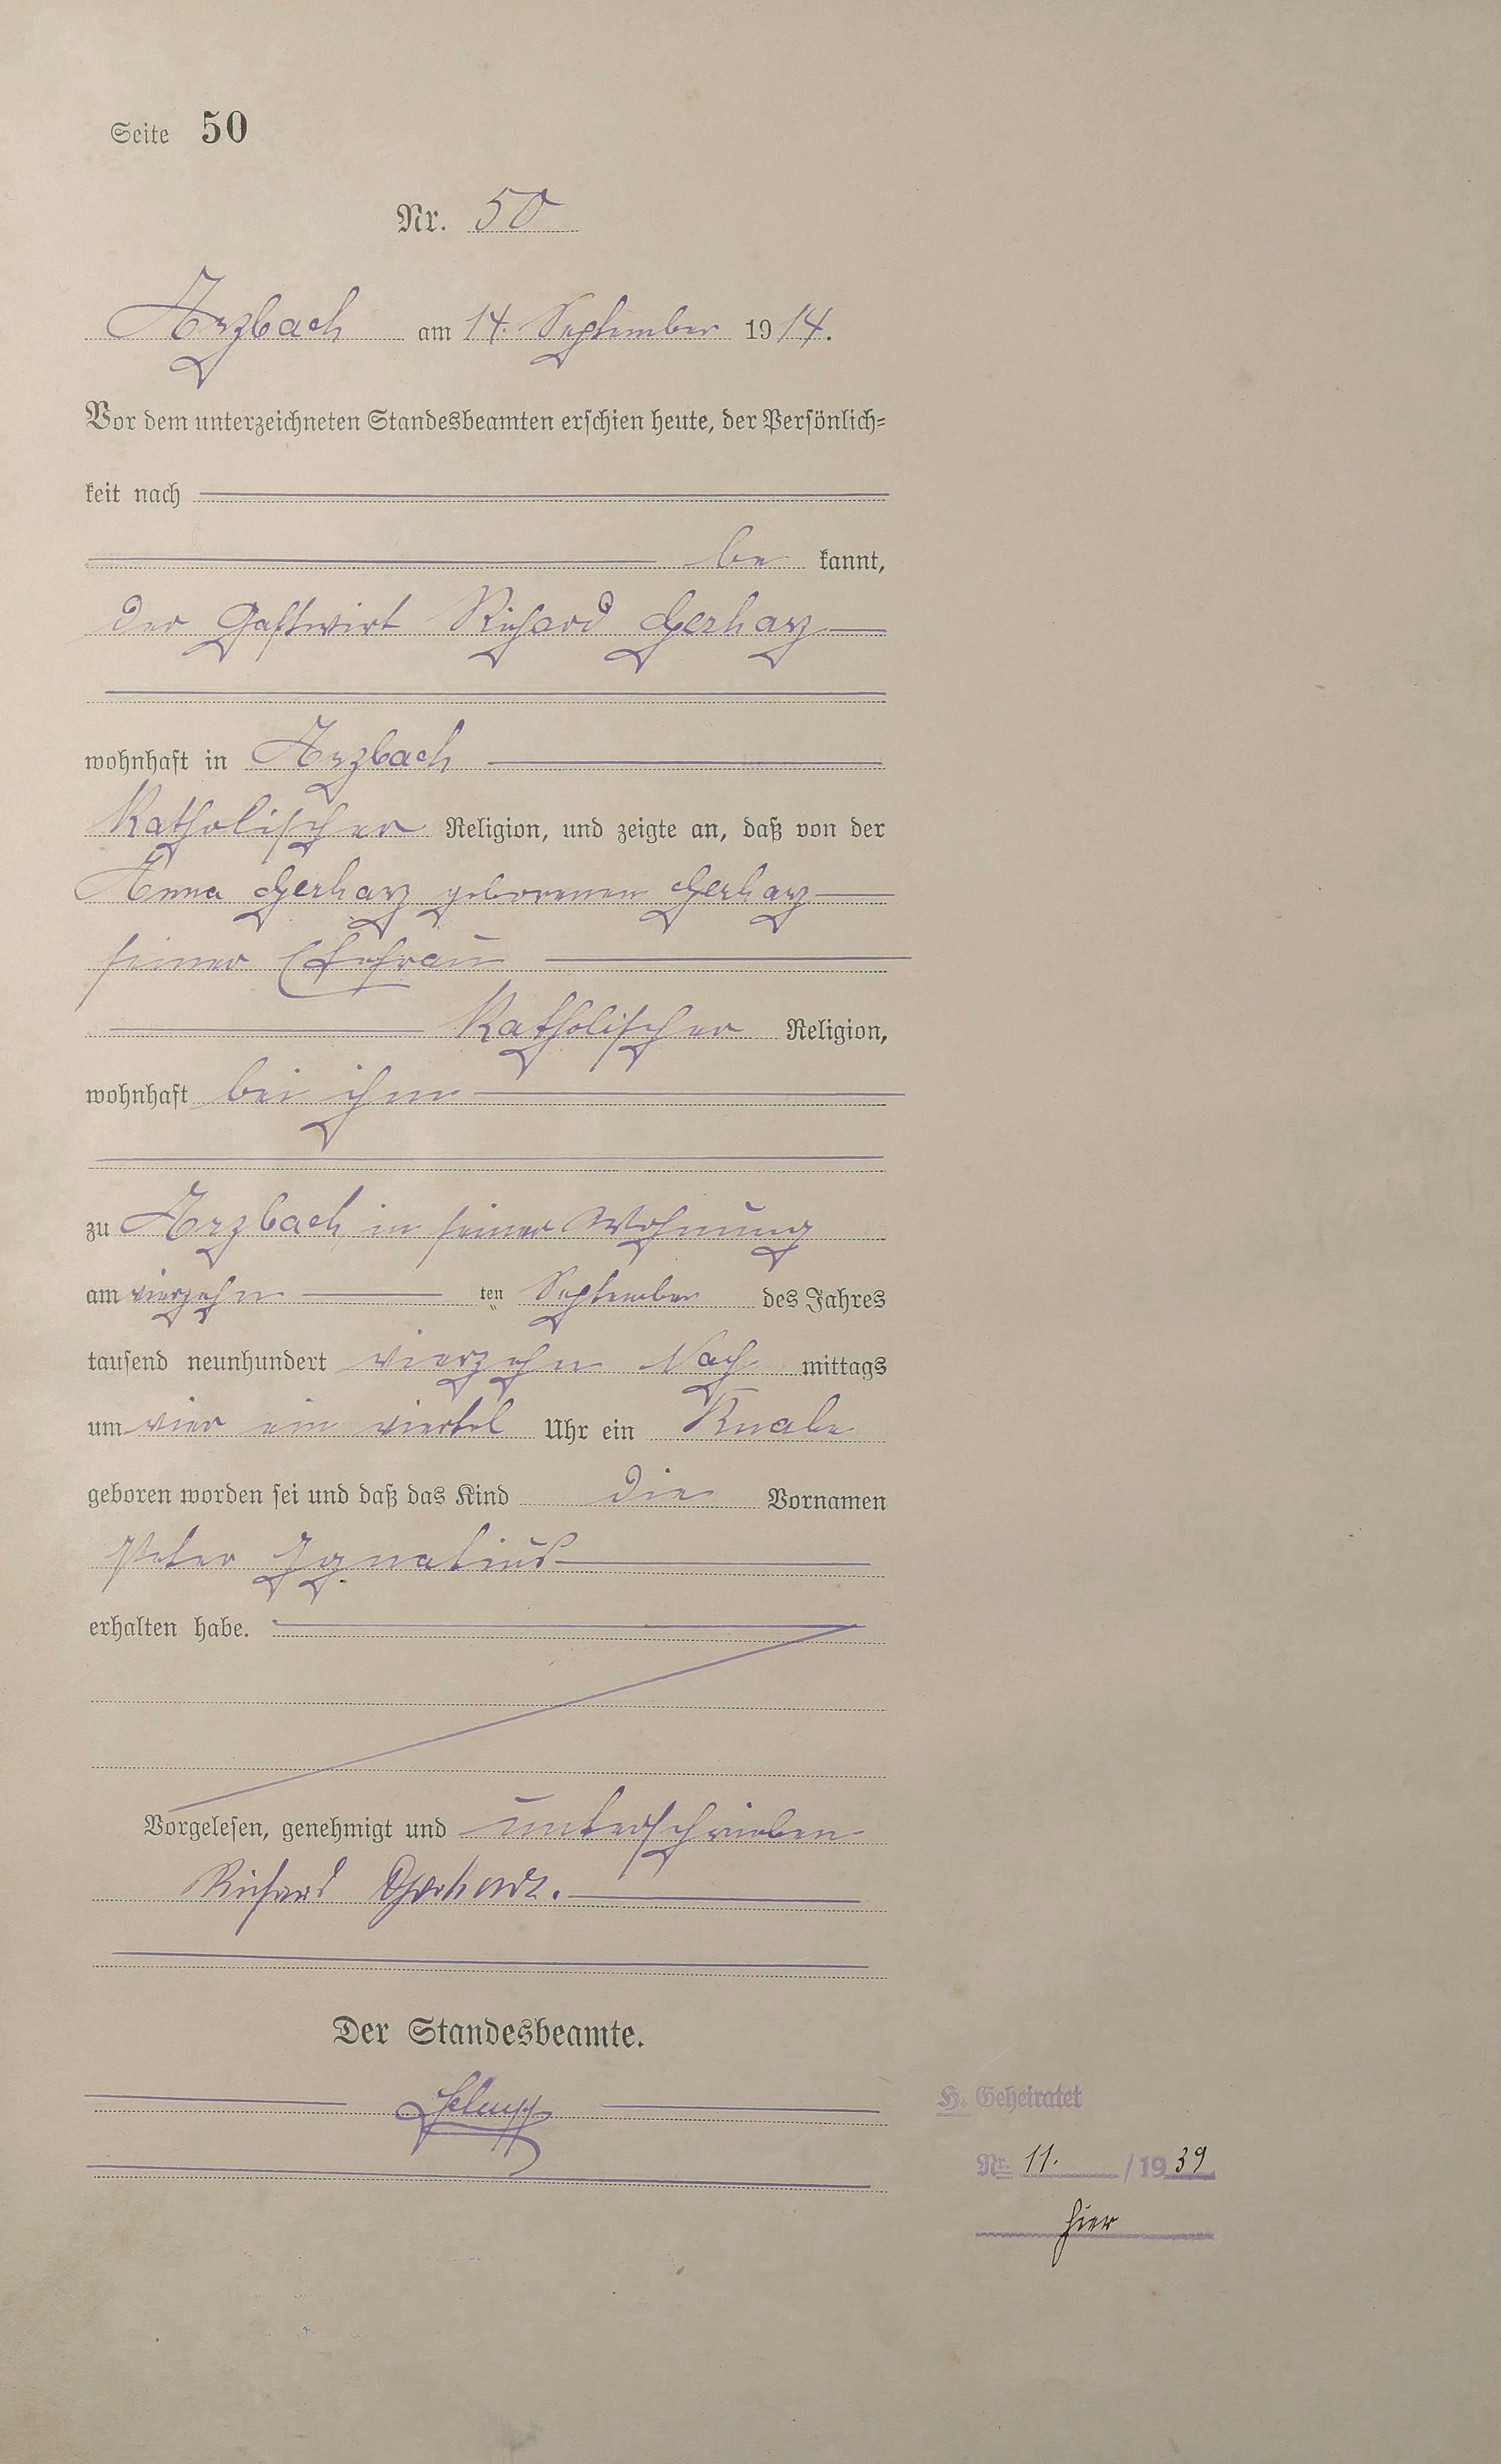 Seite 50
Nr. 50
Arzbach am 14. September 1914.
Vor dem unterzeichneten Standesbeamten erschien heute, der Persönlich=
keit nach
be kannt,
der Gastwirt Richard Gerharz
wohnhaft in Arzbach
Katholischer Religion, und zeigte an, daß von der
Anna Gerharz geborenen Gerharz
seiner Ehefrau
Katholischer Religion,
wohnhaft bei ihm
zu Arzbach, in seiner Wohnung
am vierzehn ten September des Jahres
tausend neunhundert vierzehn Nach mittags
um vier ein viertel Uhr ein Knabe
geboren worden sei und daß das Kind die Vornamen
Peter Ignatius
erhalten habe.
Vorgelesen, genehmigt und unterschrieben
Richard Gerharz.
Der Standesbeamte.
H. Geheiratet
Nr. 11. /1939
hier